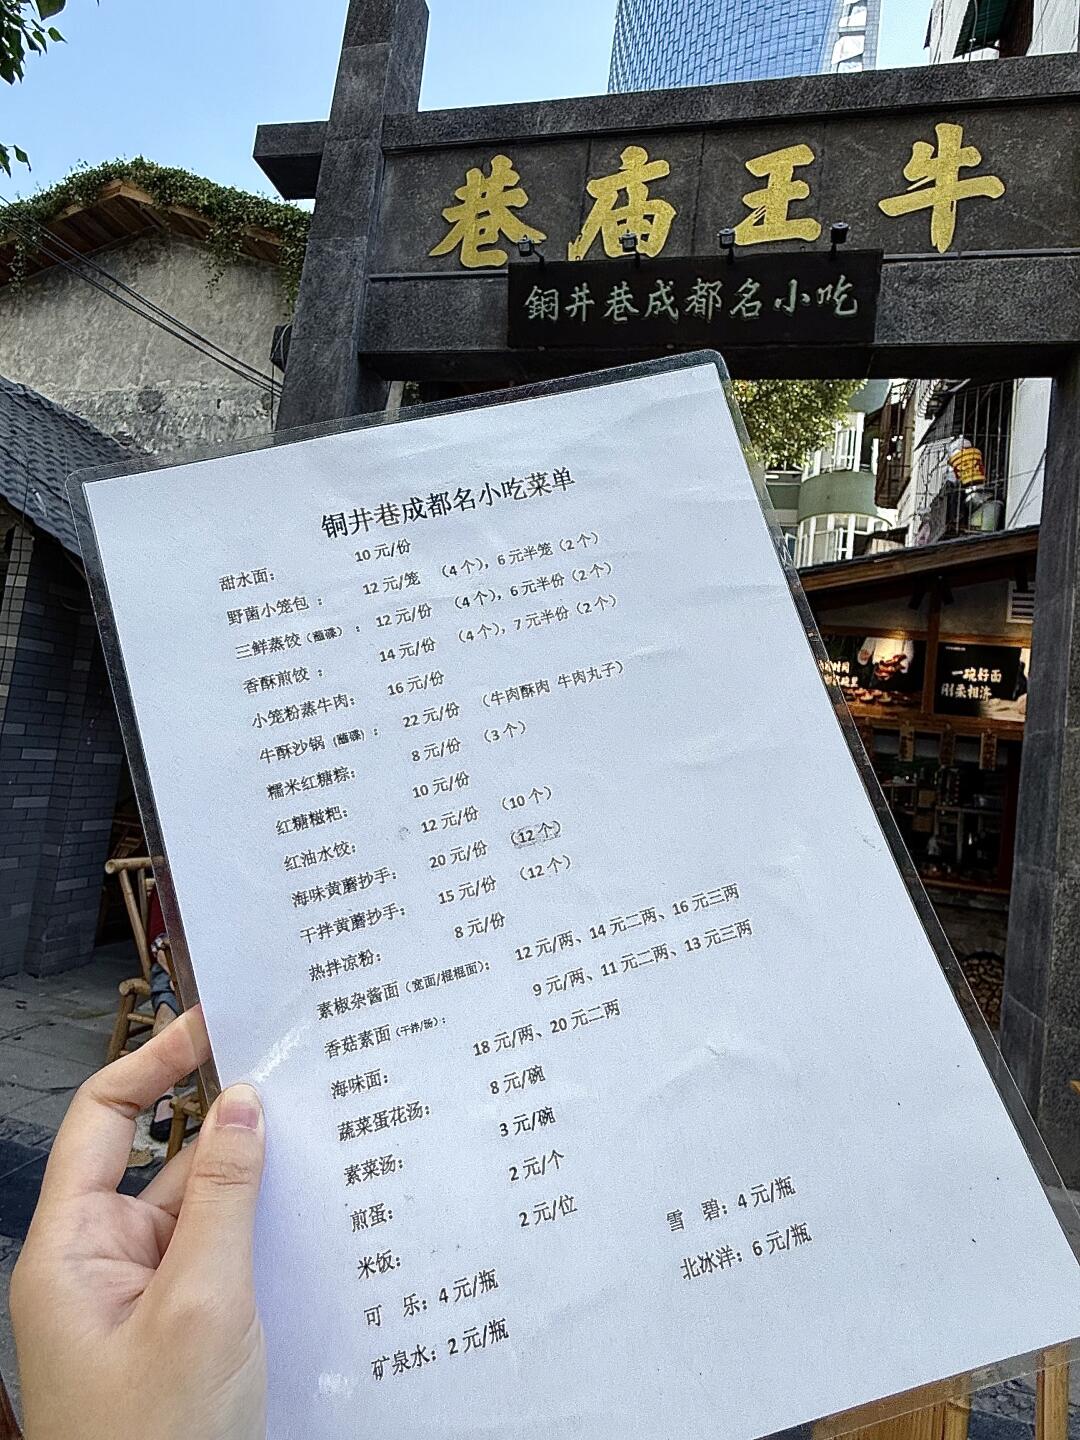 牛王庙巷
銅井巷成都名小吃
铜井巷成都名小吃菜单
甜水面： 10 元/份
野菌小笼包 ： 12 元/笼 （4 个），6 元半笼（2 个）
三鲜蒸饺（蘸碟） ： 12 元/份 （4 个），6 元半份（2 个）
香酥煎饺 ： 14 元/份 （4 个），7 元半份（2 个）
小笼粉蒸牛肉： 16 元/份
牛酥沙锅（蘸碟） ： 22 元/份 （牛肉酥肉 牛肉丸子）
糯米红糖粽： 8 元/份 （3 个）
红糖糍粑： 10 元/份
红油水饺： 12 元/份 （10 个）
海味黄磨抄手： 20 元/份 （12 个）
干拌黄磨抄手： 15 元/份 （12 个）
热拌凉粉： 8 元/份
素椒杂酱面（宽面/棍棍面）： 12 元/两、14 元二两、16 元三两
香菇素面（干拌/汤）： 9 元/两、11 元二两、13 元三两
海味面： 18 元/两、20 元二两
蔬菜蛋花汤： 8 元/碗
素菜汤： 3 元/碗
煎蛋： 2 元/个
米饭： 2 元/位
可 乐：4 元/瓶 雪 碧：4 元/瓶
矿泉水：2 元/瓶 北冰洋：6 元/瓶
一碗好面
刚柔相济